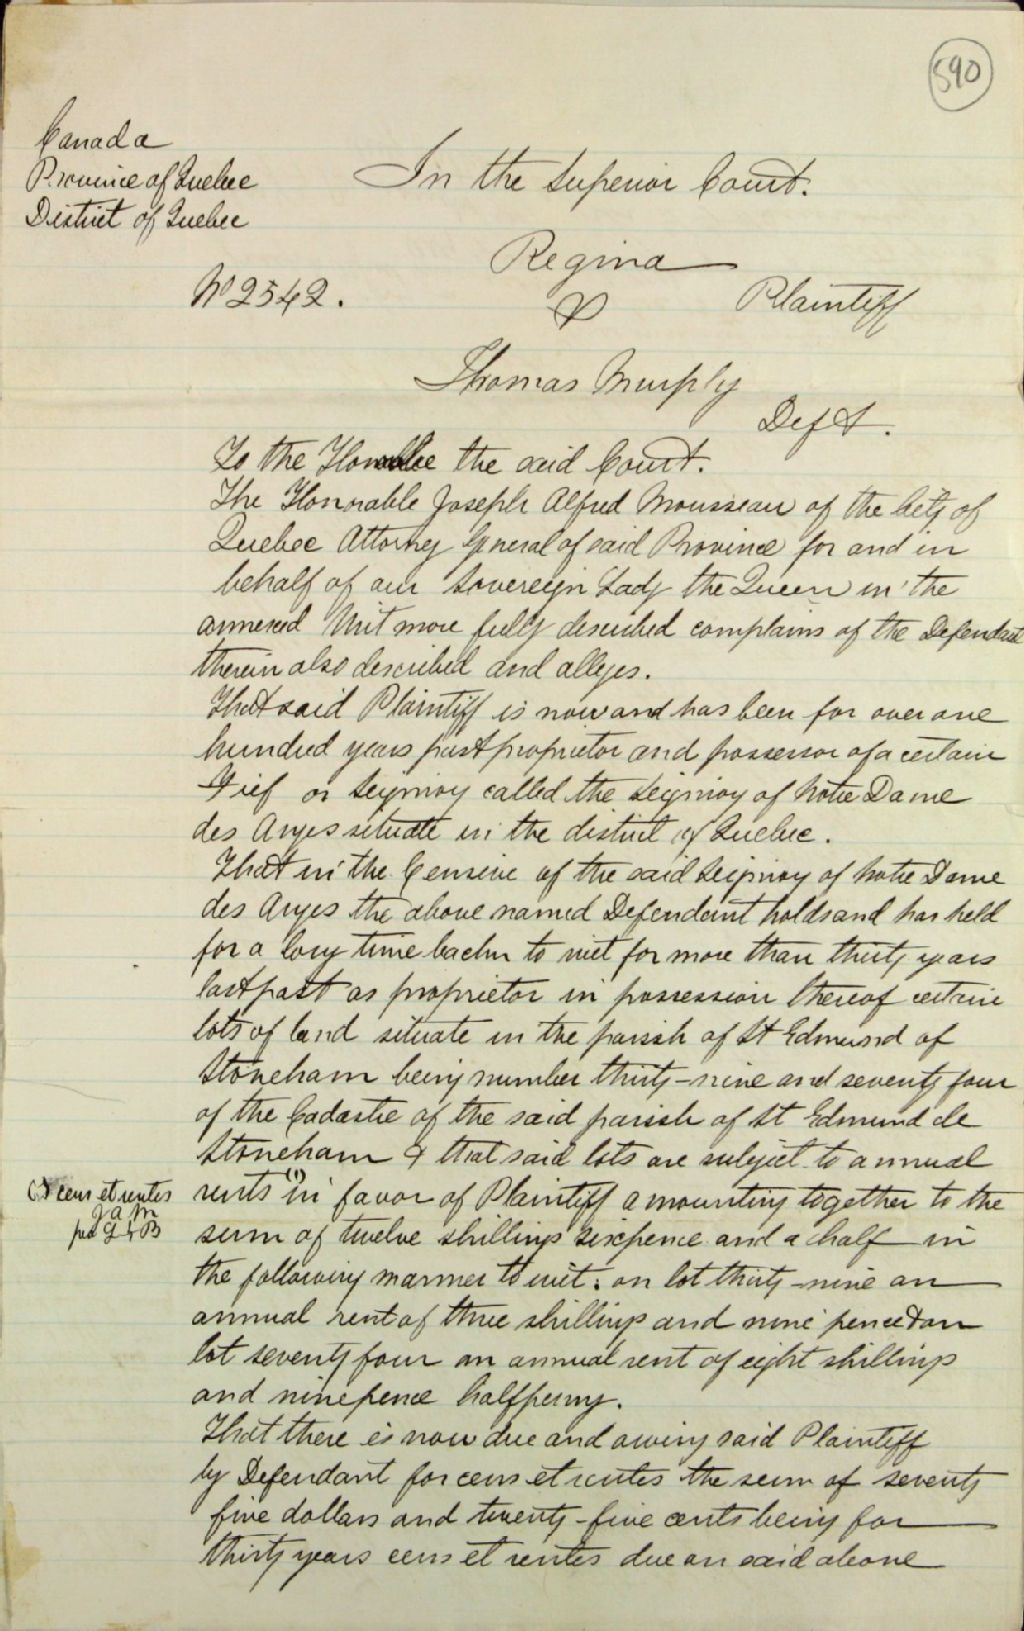 590
Canada
Province of Quebec
District of Quebec
In the Superior Court.
No 2542.
Regina
Plaintiff
v
Thomas Murphy
Deft.
To the Honorable the said Court.
The Honorable Joseph Alfred Mousseau of the City of
Quebec Attorney General of said Province for and in
behalf of our Sovereign Lady the Queen in the
annexed Writ more fully described complains of the Defendant
therein also described and alleges.
That said Plaintiff is now and has been for over one
hundred years past proprietor and possessor of a certain
Fief or Seigniory called the Seigniory of Notre Dame
des Anges situate in the district of Quebec.
That in the Censive of the said Seigniory of Notre Dame
des Anges the above named Defendant holds and has held
for a long time back to wit for more than thirty years
last past as proprietor in possession thereof certain
lots of land situate in the parish of St Edmund of
Stoneham being number thirty-nine and seventy four
of the Cadastre of the said parish of St Edmund de
Stoneham & that said lots are subject to annual
rents (1) in favor of Plaintiff amounting together to the
(1) cens et rentes
J A M
per
sum of twelve shillings sixpence and a half in
the following manner to wit: on lot thirty-nine an
annual rent of three shillings and nine pence & on
lot seventy four an annual rent of eight shillings
and ninepence halfpenny.
That there is now due and owing said Plaintiff
by Defendant for cens et rentes the sum of seventy
five dollars and twenty-five cents being for
thirty years cens et rentes due on said above